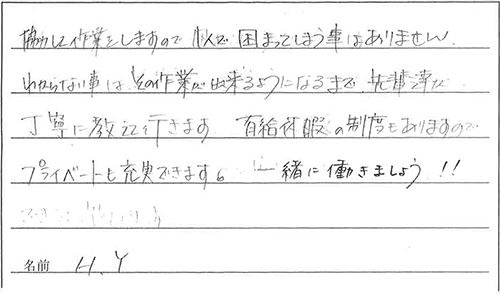 協力して作業をしますので1人で困ってしまう事はありません。
わからない事は、その作業が出来るようになるまで、先輩達が
丁寧に教えて行きます 有給休暇の制度もありますので
プライベートも充実できます。 一緒に働きましょう!!
名前 H.Y